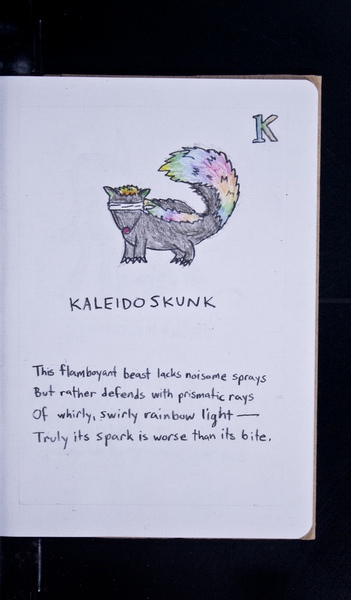 K
KALEIDOSKUNK
This flamboyant beast lacks noisome sprays
But rather defends with prismatic rays
Of whirly, swirly rainbow light —
Truly its spark is worse than its bite.